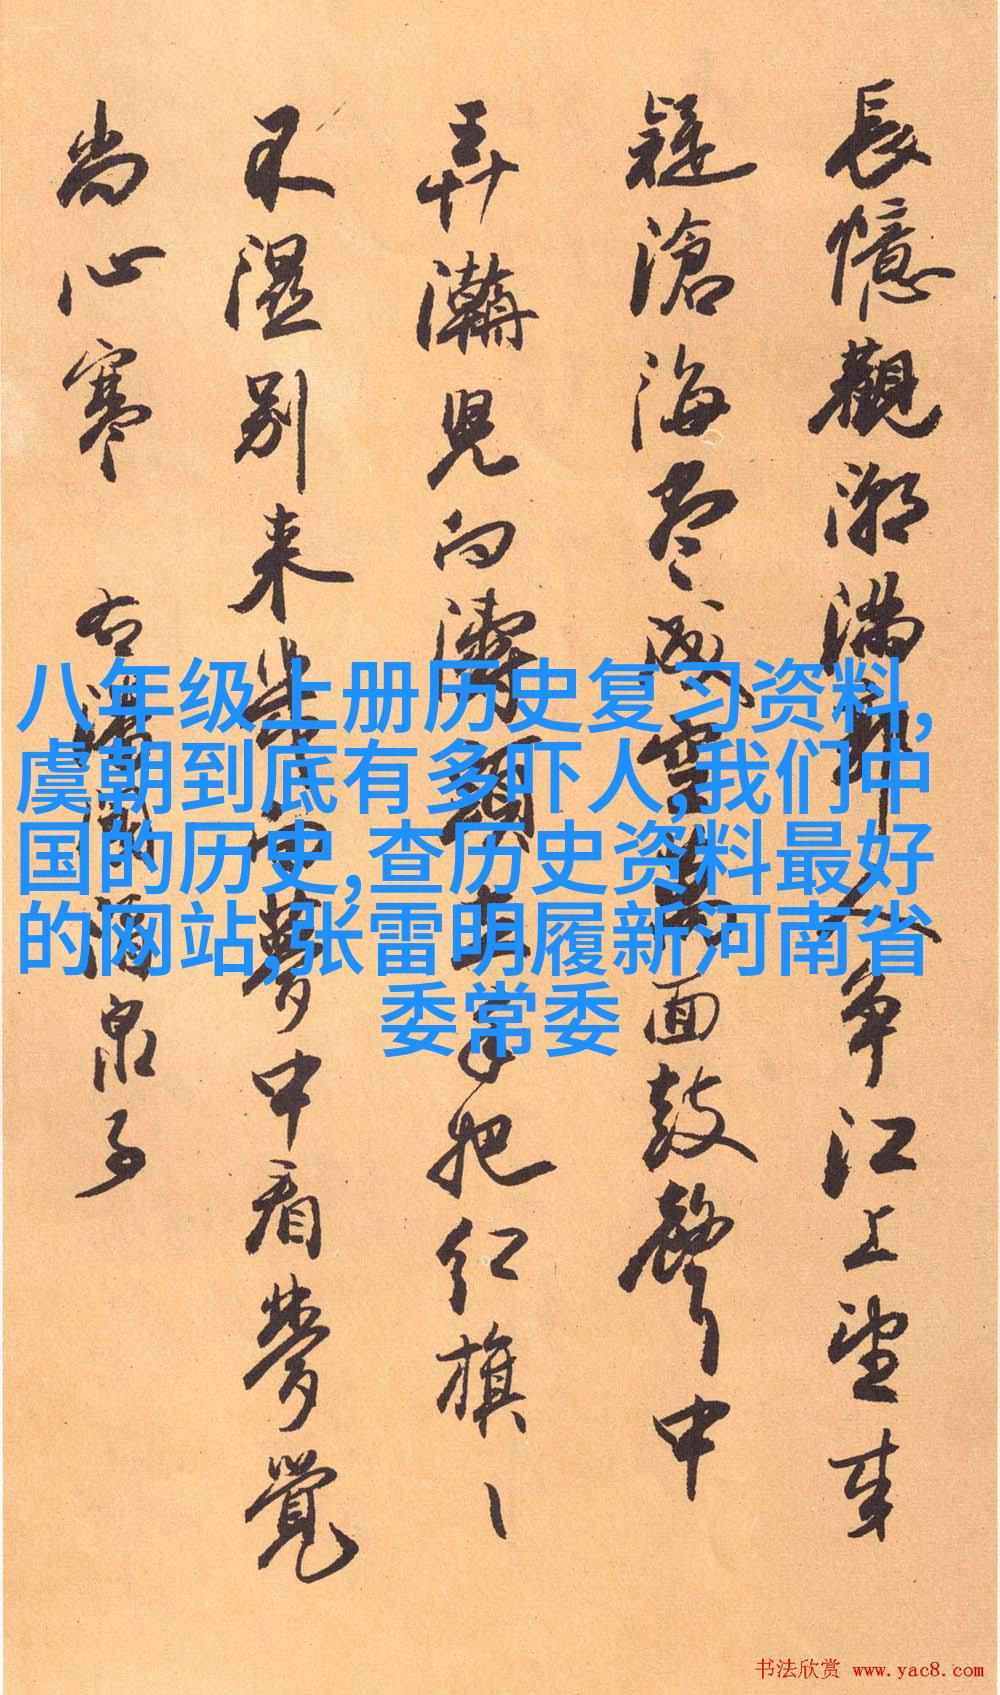 長憶觀潮滿郭人争江上望来
疑滄海尽成空萬面鼓聲中
弄潮児向濤頭立手把红旗、
不湿别来幾向夢中看夢覺
尚心寒 右潘閬酒泉子
八年级上册历史复习资料,
虞朝到底有多吓人,我们中
国的历史,查历史资料最好
的网站,张雷明履新河南省
委常委
书法欣赏 www.yac8.com